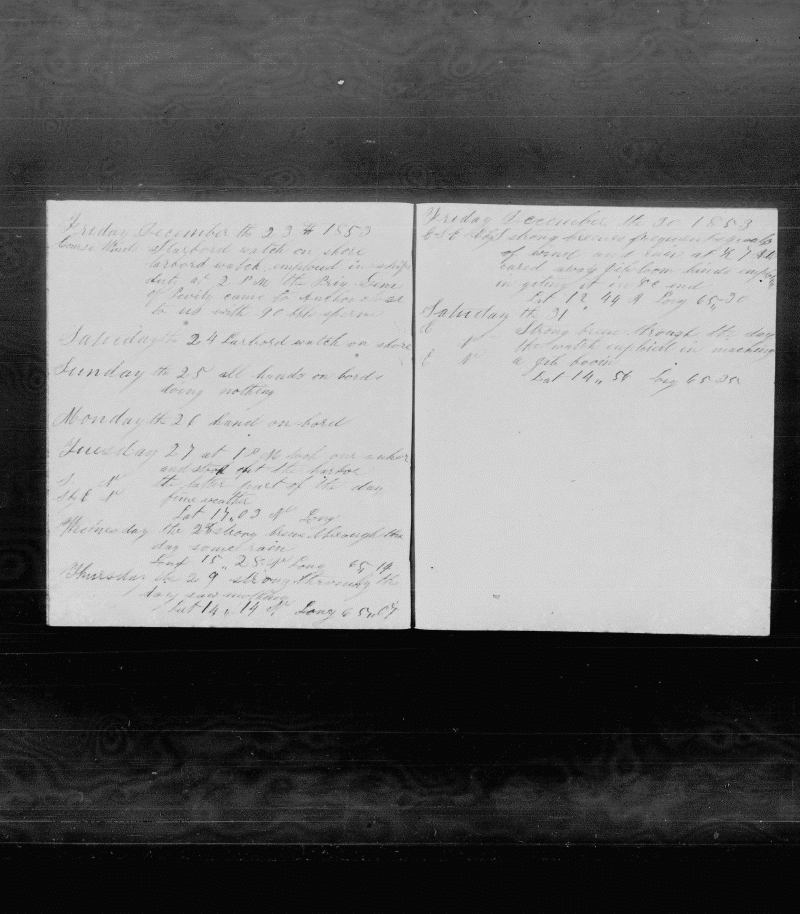 Friday December the 23 th 1853
Course Winds Starbord watch on shore
larbord watch employd in ships
duty at 2 P M the Brig June
of Lovely came to Anchor close
to us with 90 bbls sperm
Saturday th 24 Larbord watch on shore
Sunday th 25 all hands on bord
doing nothing
Monday th 26 hand on bord
Tuesday 27 at 1 P M took our anker
and stood out the harbor
S. N the latter part of the day
S by E N fine weather
Lat 17,,03 N Long
Wednesday the 28 strong brese through the
day some rain
Lat 15,, 25 N Long 65,,14
Thursday the 29 strong through the
day saw nothing
Lat 14,, 14 N Long 65,,07
Friday December the 30 1853
strong breses frequent squals
of wind and rain at 7 AM
caried away jib boom hands
in geting it in
Lat 12,,44 N Long 65,,30
Saturday th 31
E N Strong brese through the day
the watch in macking
E N a jib boom
Lat 14,, 56 Long 65 25